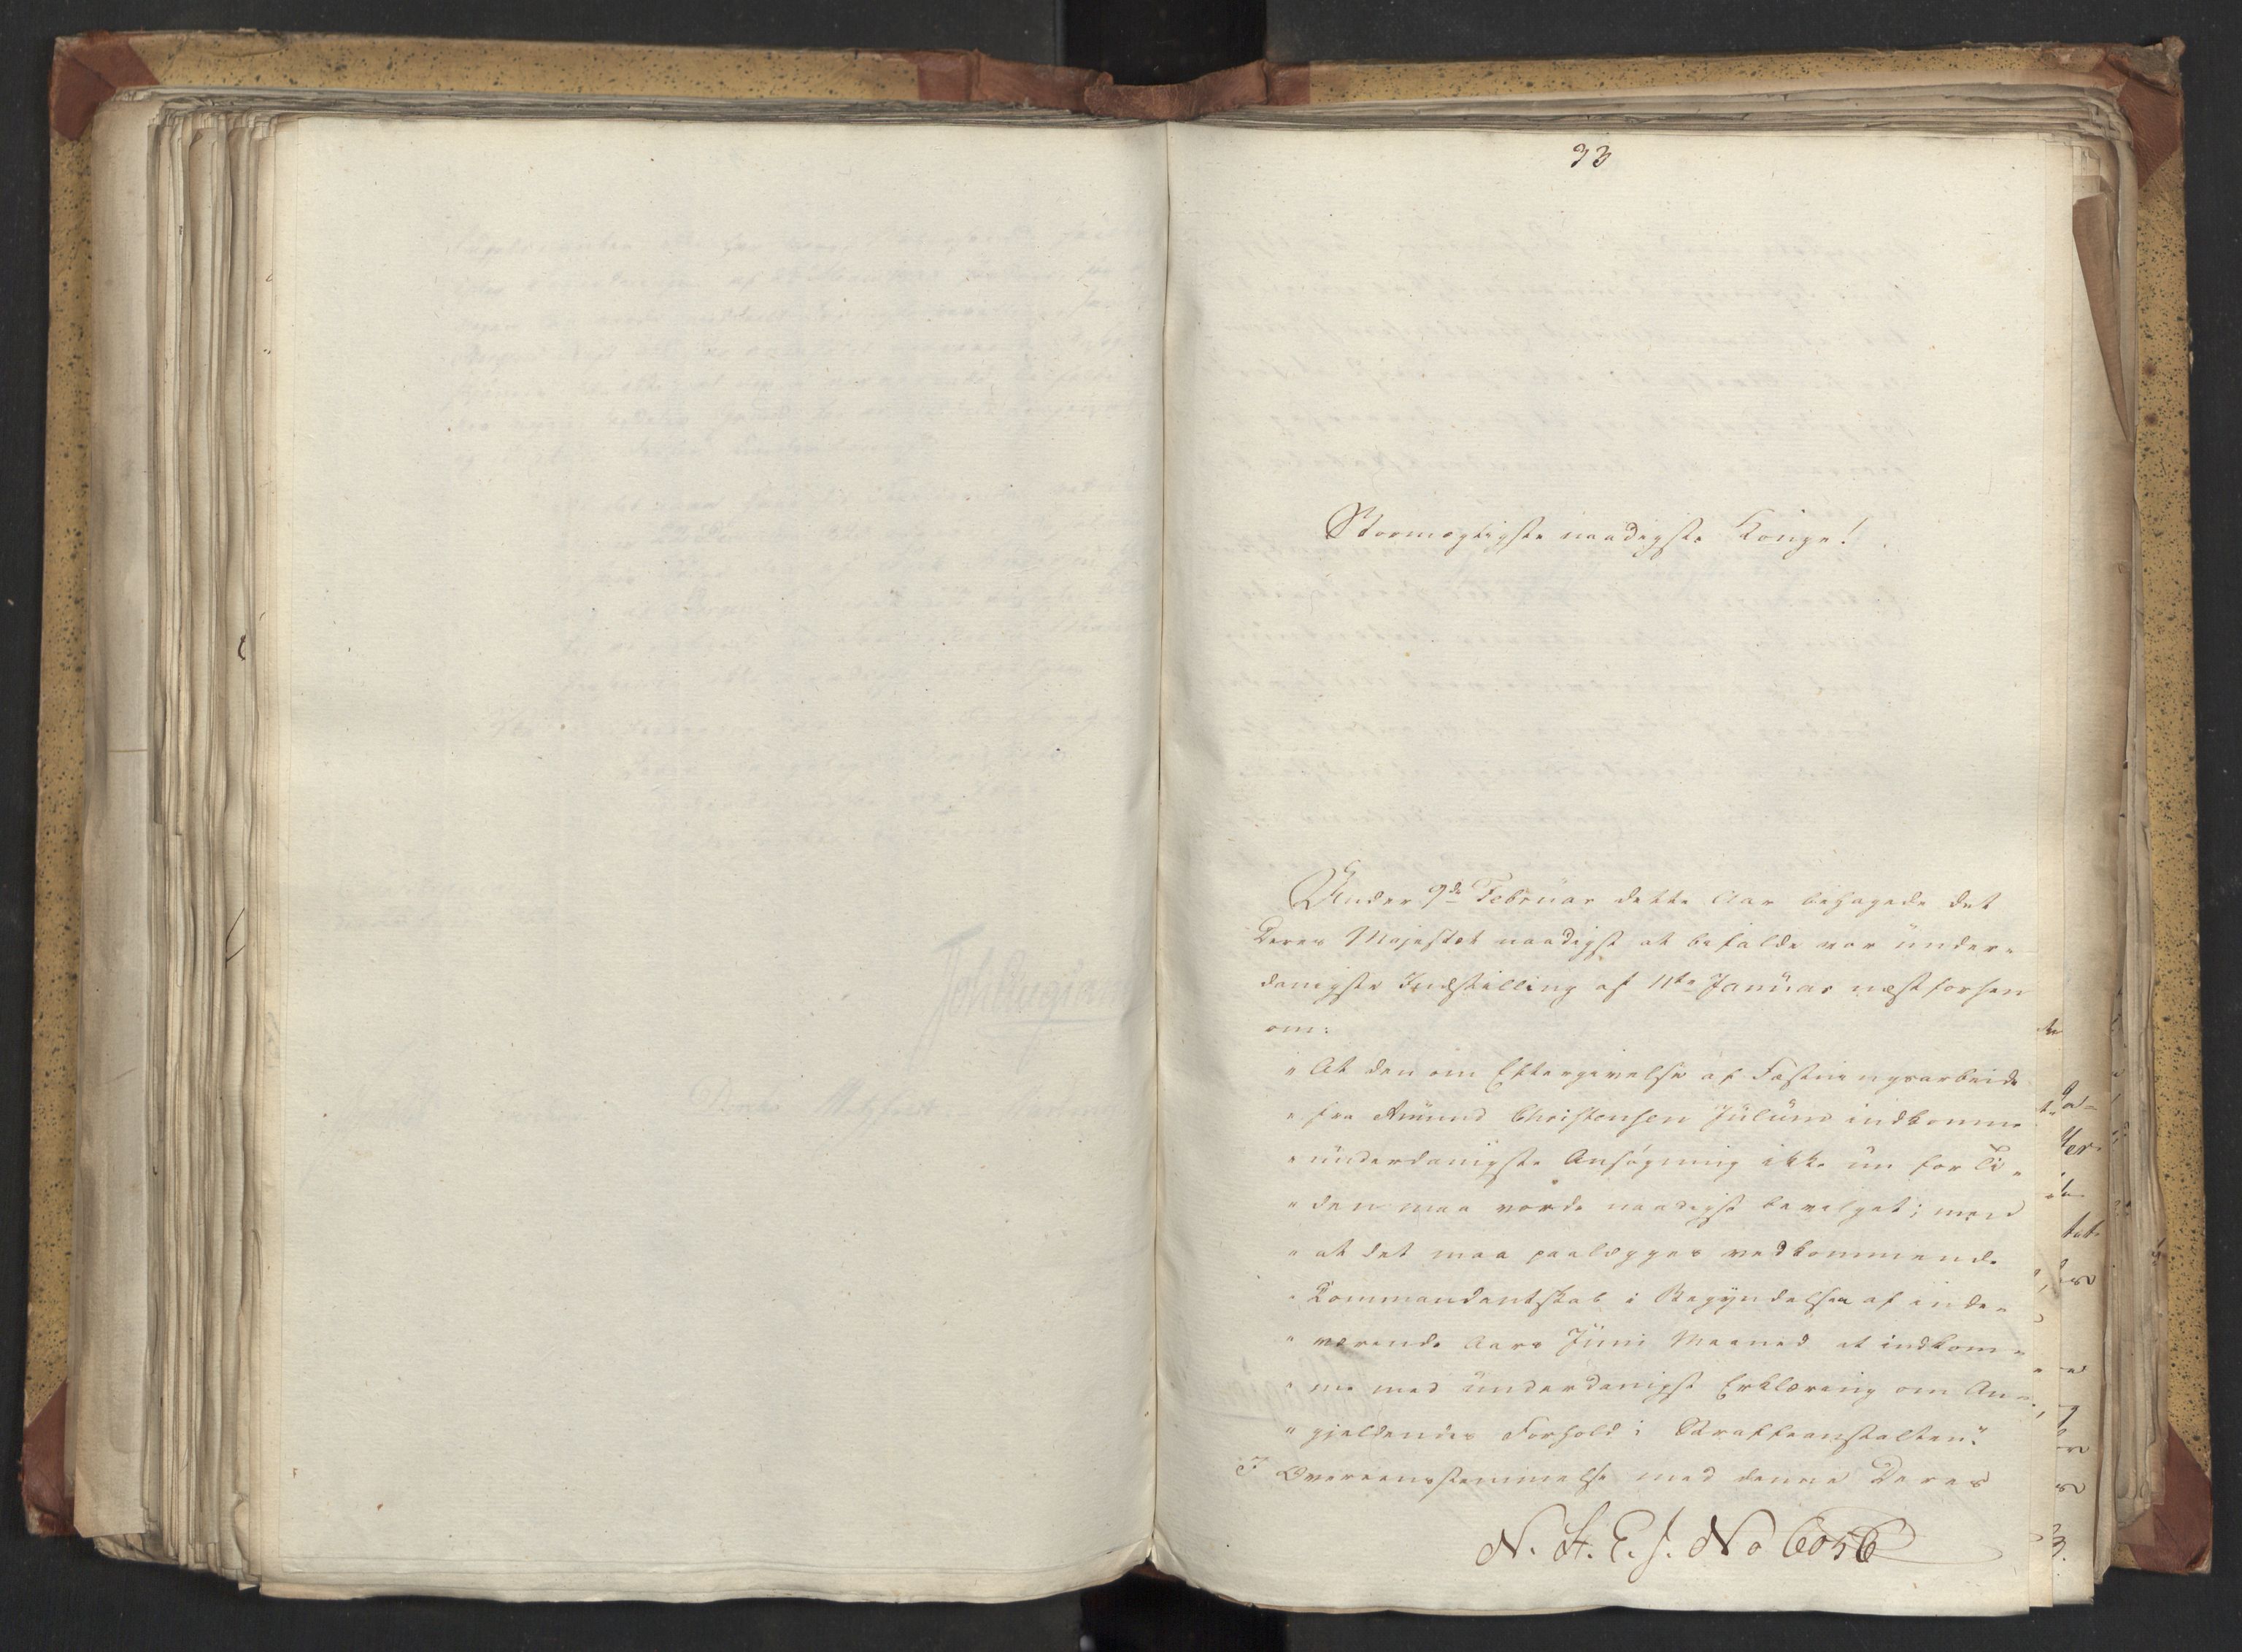 93
Stormægtigste naadigste Konge!
Under 9de Februar dette Aar behagede det
Deres Majestæt naadigst at bifalde vor under-
danigste Indstilling af 11te Januar næstforhen
om:
" At den om Eftergivelse af Fæstningsarbeide
" fra Amund Christensen Julum indkomne
" underdanigste Ansøgning ikke nu for Ti-
" den maa vorde naadigst bevilget; men
" at det maa paalægges vedkommende
" Kommandantskab i Begyndelsen af inde-
" værende Aars Juni Maaned at indkom-
" me med underdanigst Erklæring om An-
" gjeldendes Forhold i Straffeanstalten."
I Overeensstemmelse med denne Deres
N. St. E. J. No 6056